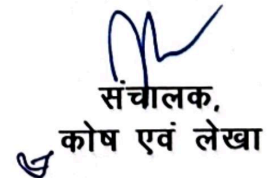 संचालक,
कोष एवं लेखा